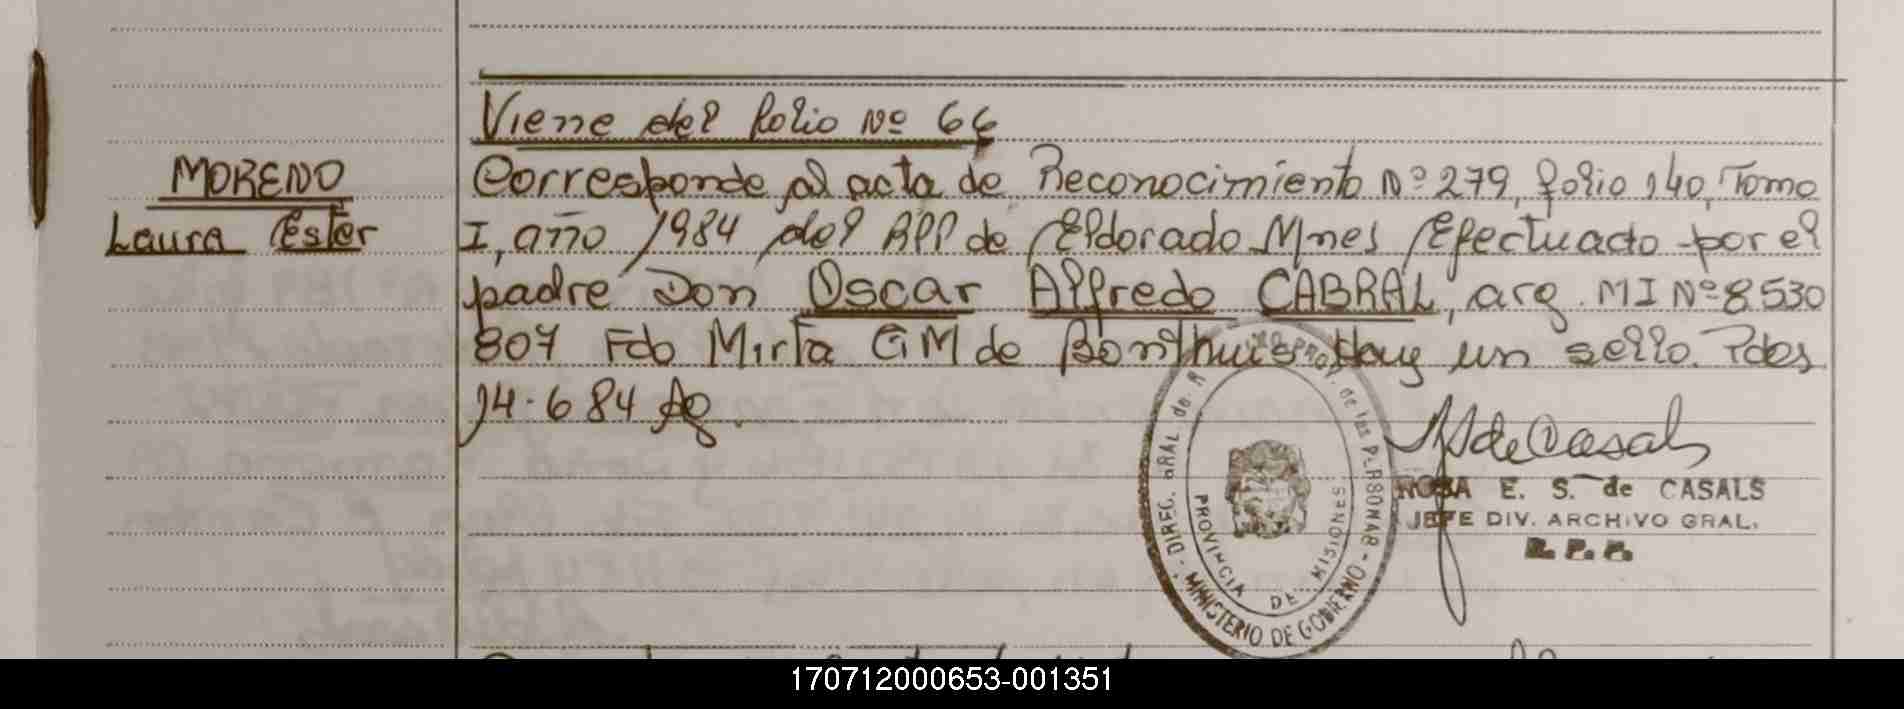 Viene del folio Nº 66
MORENO
Laura Ester
Corresponde al acta de Reconocimiento Nº 279, folio 140, Tomo
I, año 1984 del RPP de Eldorado Mnes Efectuado por el
padre Don Oscar Alfredo CABRAL, arg. MI Nº 8530
807 Fdo Mirta G M de Bonthuis Hay un sello. Pdas
14.6 84
de Casals
ROSA E. S. de CASALS
JEFE DIV. ARCHIVO GRAL.
R. P. P.
DIREC. GRAL de R PROV. de las PERSONAS - MINISTERIO DE GOBIERNO -
PROVINCIA DE MISIONES
170712000653-001351